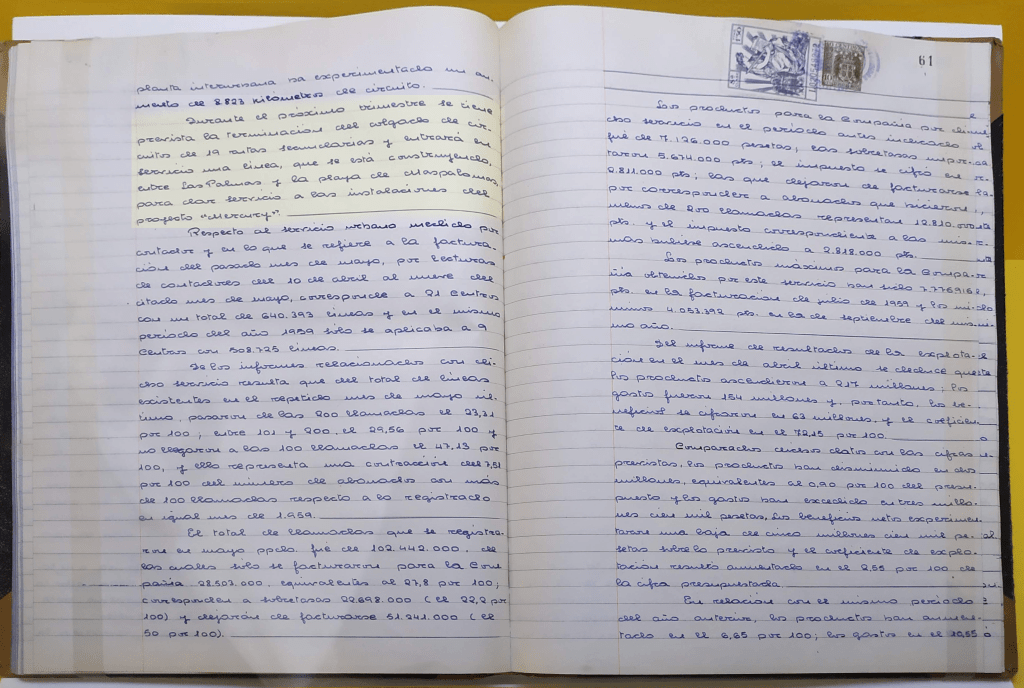 planta interurbana ha experimentado un au-
mento de 2823 kilometros de circuito.
Durante el próximo trimestre se tiene
prevista la terminación del colgado de cir-
cuitos de 19 rutas secundarias y entrará en
servicio una línea, que se está construyendo,
entre Las Palmas y la playa de Maspalomas,
para dar servicio a las instalaciones del
proyecto "Mercury".
Respecto al servicio urbano medido por
contador y en lo que se refiere a la factura-
ción del pasado mes de mayo, por lecturas
de contadores del 10 de abril al nueve del
citado mes de mayo, corresponde a 21 Centros
con un total de 640.393 lineas y en el mismo
periodo del año 1959 sólo se aplicaba a 9
Centros con 508.725 lineas.
De los informes relacionados con di-
cho servicio resulta que del total de lineas
existentes en el repetido mes de mayo úl-
timo, pasaron de las 200 llamadas el 23,31
por 100; entre 101 y 200, el 29,56 por 100 y
no llegaron a las 100 llamadas el 47,13 por
100, y ello representa una contracción del 7,51
por 100 del número de abonados con más
de 100 llamadas respecto a lo registrado
en igual mes de 1.959.
El total de llamadas que se registra-
ron en mayo ppdo. fué de 102.442.000, de
las cuales sólo se facturaron para la Com
pañia 28.503.000, equivalentes al 27,8 por 100;
corresponden a sobretasas 22.698.000 (el 22,2 por
100) y dejaron de facturarse 51.241.000 (el
50 por 100).
61
Los productos para la Compañia por di
cho servicio en el periodo antes indicado
fué de 7.126.000 pesetas; las sobretasas impor-
taron 5.674.000 pts; el impuesto se cifró en
2.811.000 pts; las que dejaron de facturarse
por corresponder a abonados que hicieron
menos de 200 llamadas representan 12.810.000
pts. y el impuesto correspondiente a las mis-
mas hubiese ascendido a 2.818.000 pts.
Los productos máximos para la Compa-
ñia obtenidos por este servicio han sido 7.776.916
pts. en la facturación de julio de 1959 y los mí
nimos 4.053.392 pts. en la de septiembre del mis-
mo año.
Del informe de resultados de la explota-
ción en el mes de abril último se deduce que
los productos ascendieron a 217 millones; los
gastos fueron 154 millones y, por tanto, los be-
neficios se cifraron en 63 millones, y el coeficien
te de explotación en el 72,15 por 100.
Comparados estos datos con las cifras
previstas, los productos han disminuido en dos
millones, equivalentes al 0,90 por 100 del presu-
puesto y los gastos han excedido en tres millo-
nes cien mil pesetas, Los beneficios netos experimen-
taron una baja de cinco millones cien mil pe-
setas sobre lo previsto y el coeficiente de explo-
tación resultó aumentado en el 2,55 por 100 de
la cifra presupuestada.
En relación con el mismo periodo
del año anterior, los productos han aumen-
tado en el 6,65 por 100; los gastos en el 10,55